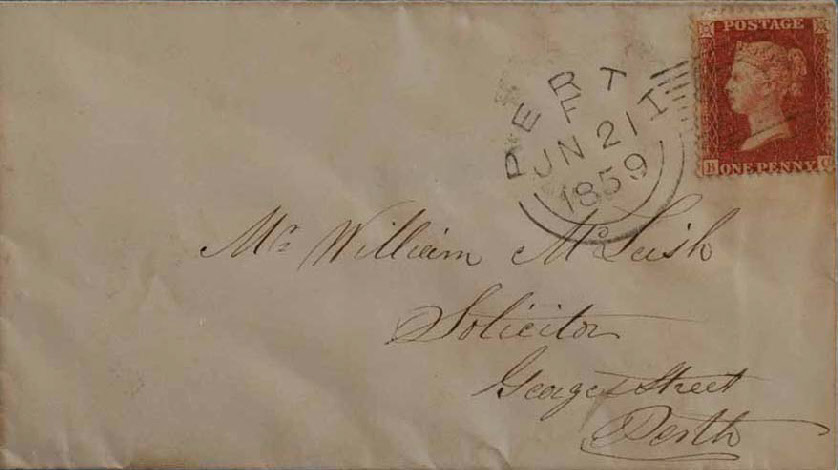 POSTAGE
ONE PENNY
PERTH
F
JN 21
1859
Mr. William McLeish
Solicitor
George Street
Perth